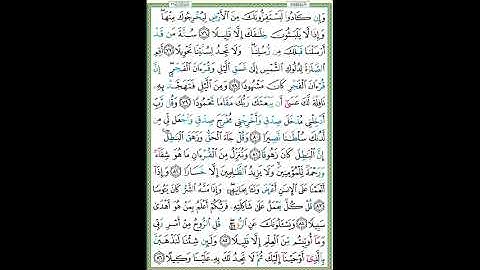 وَإِن كَادُوا۟ لَيَسْتَفِزُّونَكَ مِنَ ٱلْأَرْضِ لِيُخْرِجُوكَ مِنْهَا ۖ
وَإِذًا لَّا يَلْبَثُونَ خِلَٰفَكَ إِلَّا قَلِيلًا ٧٦ سُنَّةَ مَن قَدْ
أَرْسَلْنَا قَبْلَكَ مِن رُّسُلِنَا ۖ وَلَا تَجِدُ لِسُنَّتِنَا تَحْوِيلًا ٧٧ أَقِمِ
ٱلصَّلَوٰةَ لِدُلُوكِ ٱلشَّمْسِ إِلَىٰ غَسَقِ ٱلَّيْلِ وَقُرْءَانَ ٱلْفَجْرِ ۖ إِنَّ
قُرْءَانَ ٱلْفَجْرِ كَانَ مَشْهُودًا ٧٨ وَمِنَ ٱلَّيْلِ فَتَهَجَّدْ بِهِۦ
نَافِلَةً لَّكَ عَسَىٰٓ أَن يَبْعَثَكَ رَبُّكَ مَقَامًا مَّحْمُودًا ٧٩ وَقُل رَّبِّ
أَدْخِلْنِى مُدْخَلَ صِدْقٍ وَأَخْرِجْنِى مُخْرَجَ صِدْقٍ وَٱجْعَل لِّى مِن
لَّدُنكَ سُلْطَٰنًا نَّصِيرًا ٨٠ وَقُلْ جَآءَ ٱلْحَقُّ وَزَهَقَ ٱلْبَٰطِلُ ۚ
إِنَّ ٱلْبَٰطِلَ كَانَ زَهُوقًا ٨١ وَنُنَزِّلُ مِنَ ٱلْقُرْءَانِ مَا هُوَ شِفَآءٌ
وَرَحْمَةٌ لِّلْمُؤْمِنِينَ ۙ وَلَا يَزِيدُ ٱلظَّٰلِمِينَ إِلَّا خَسَارًا ٨٢ وَإِذَآ
أَنْعَمْنَا عَلَى ٱلْإِنسَٰنِ أَعْرَضَ وَنَـَٔا بِجَانِبِهِۦ ۖ وَإِذَا مَسَّهُ ٱلشَّرُّ كَانَ يَـُٔوسًا
٨٣ قُلْ كُلٌّ يَعْمَلُ عَلَىٰ شَاكِلَتِهِۦ فَرَبُّكُمْ أَعْلَمُ بِمَنْ هُوَ أَهْدَىٰ
سَبِيلًا ٨٤ وَيَسْـَٔلُونَكَ عَنِ ٱلرُّوحِ ۖ قُلِ ٱلرُّوحُ مِنْ أَمْرِ رَبِّى
وَمَآ أُوتِيتُم مِّنَ ٱلْعِلْمِ إِلَّا قَلِيلًا ٨٥ وَلَئِن شِئْنَا لَنَذْهَبَنَّ
بِٱلَّذِىٓ أَوْحَيْنَآ إِلَيْكَ ثُمَّ لَا تَجِدُ لَكَ بِهِۦ عَلَيْنَا وَكِيلًا ٨٦